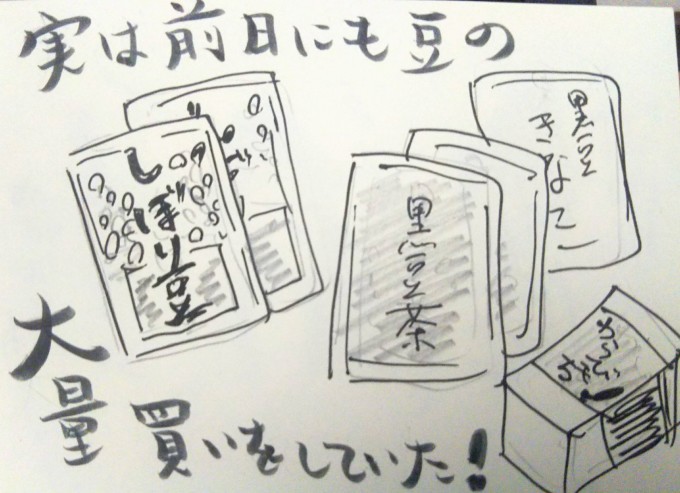 実は前日にも豆の
しぼり豆
黒豆茶
黒豆
きなこ
わらび
もち
大量買いをしていた!